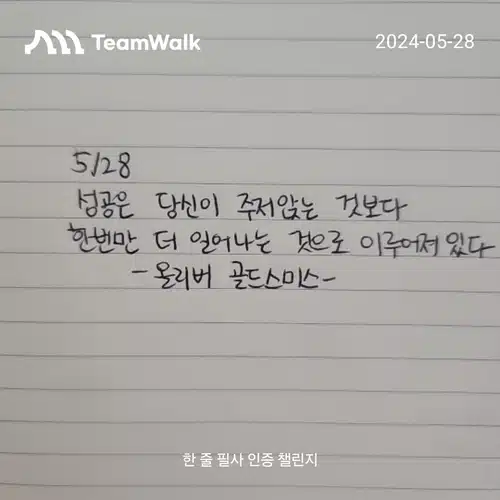 TeamWalk
2024-05-28
5/28
성공은 당신이 주저앉는 것보다
한번만 더 일어나는 것으로 이루어져 있다
-올리버 골드스미스-
한 줄 필사 인증 챌린지